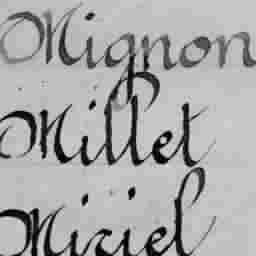 Mignon
Millet
Miriel